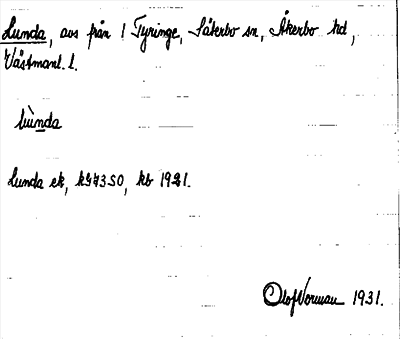 Lunda, avs från 1 Tyringe, Säterbo sn, Åkerbo hd,
Västmanl. l.
lùnda
Lunda ek, k973SO, kb 1921.
Olof Norman 1931.